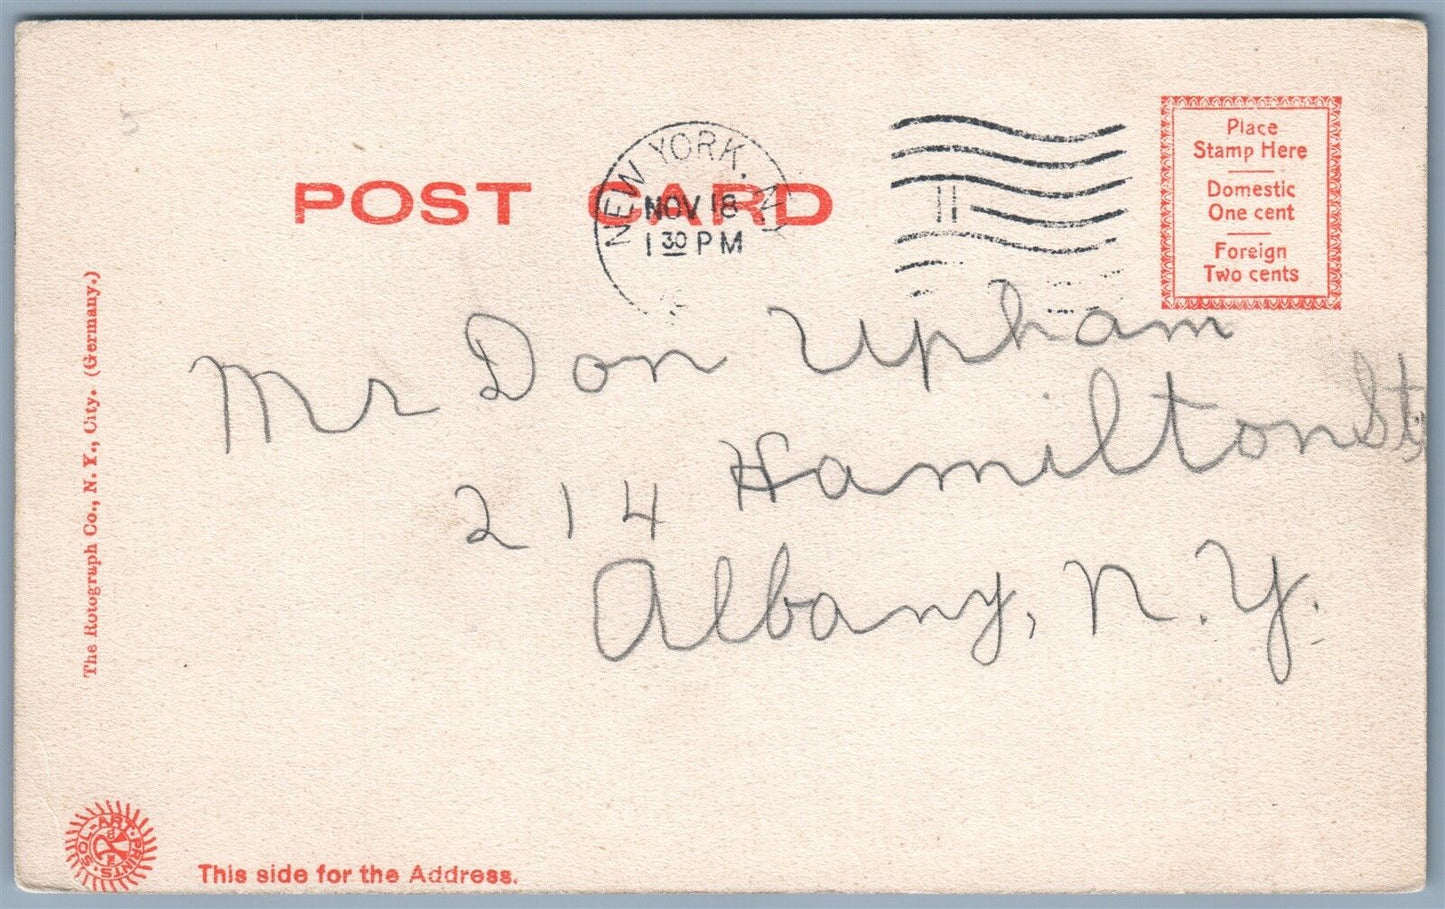 POST CARD
NEW YORK, N.Y.
NOV 18
1 30 PM
11
Place
Stamp Here
Domestic
One cent
Foreign
Two cents
Mr Don Upham
214 Hamilton St,
Albany, N.Y.
The Rotograph Co., N. Y., City. (Germany.)
SOL-ART PRINTS.
This side for the Address.